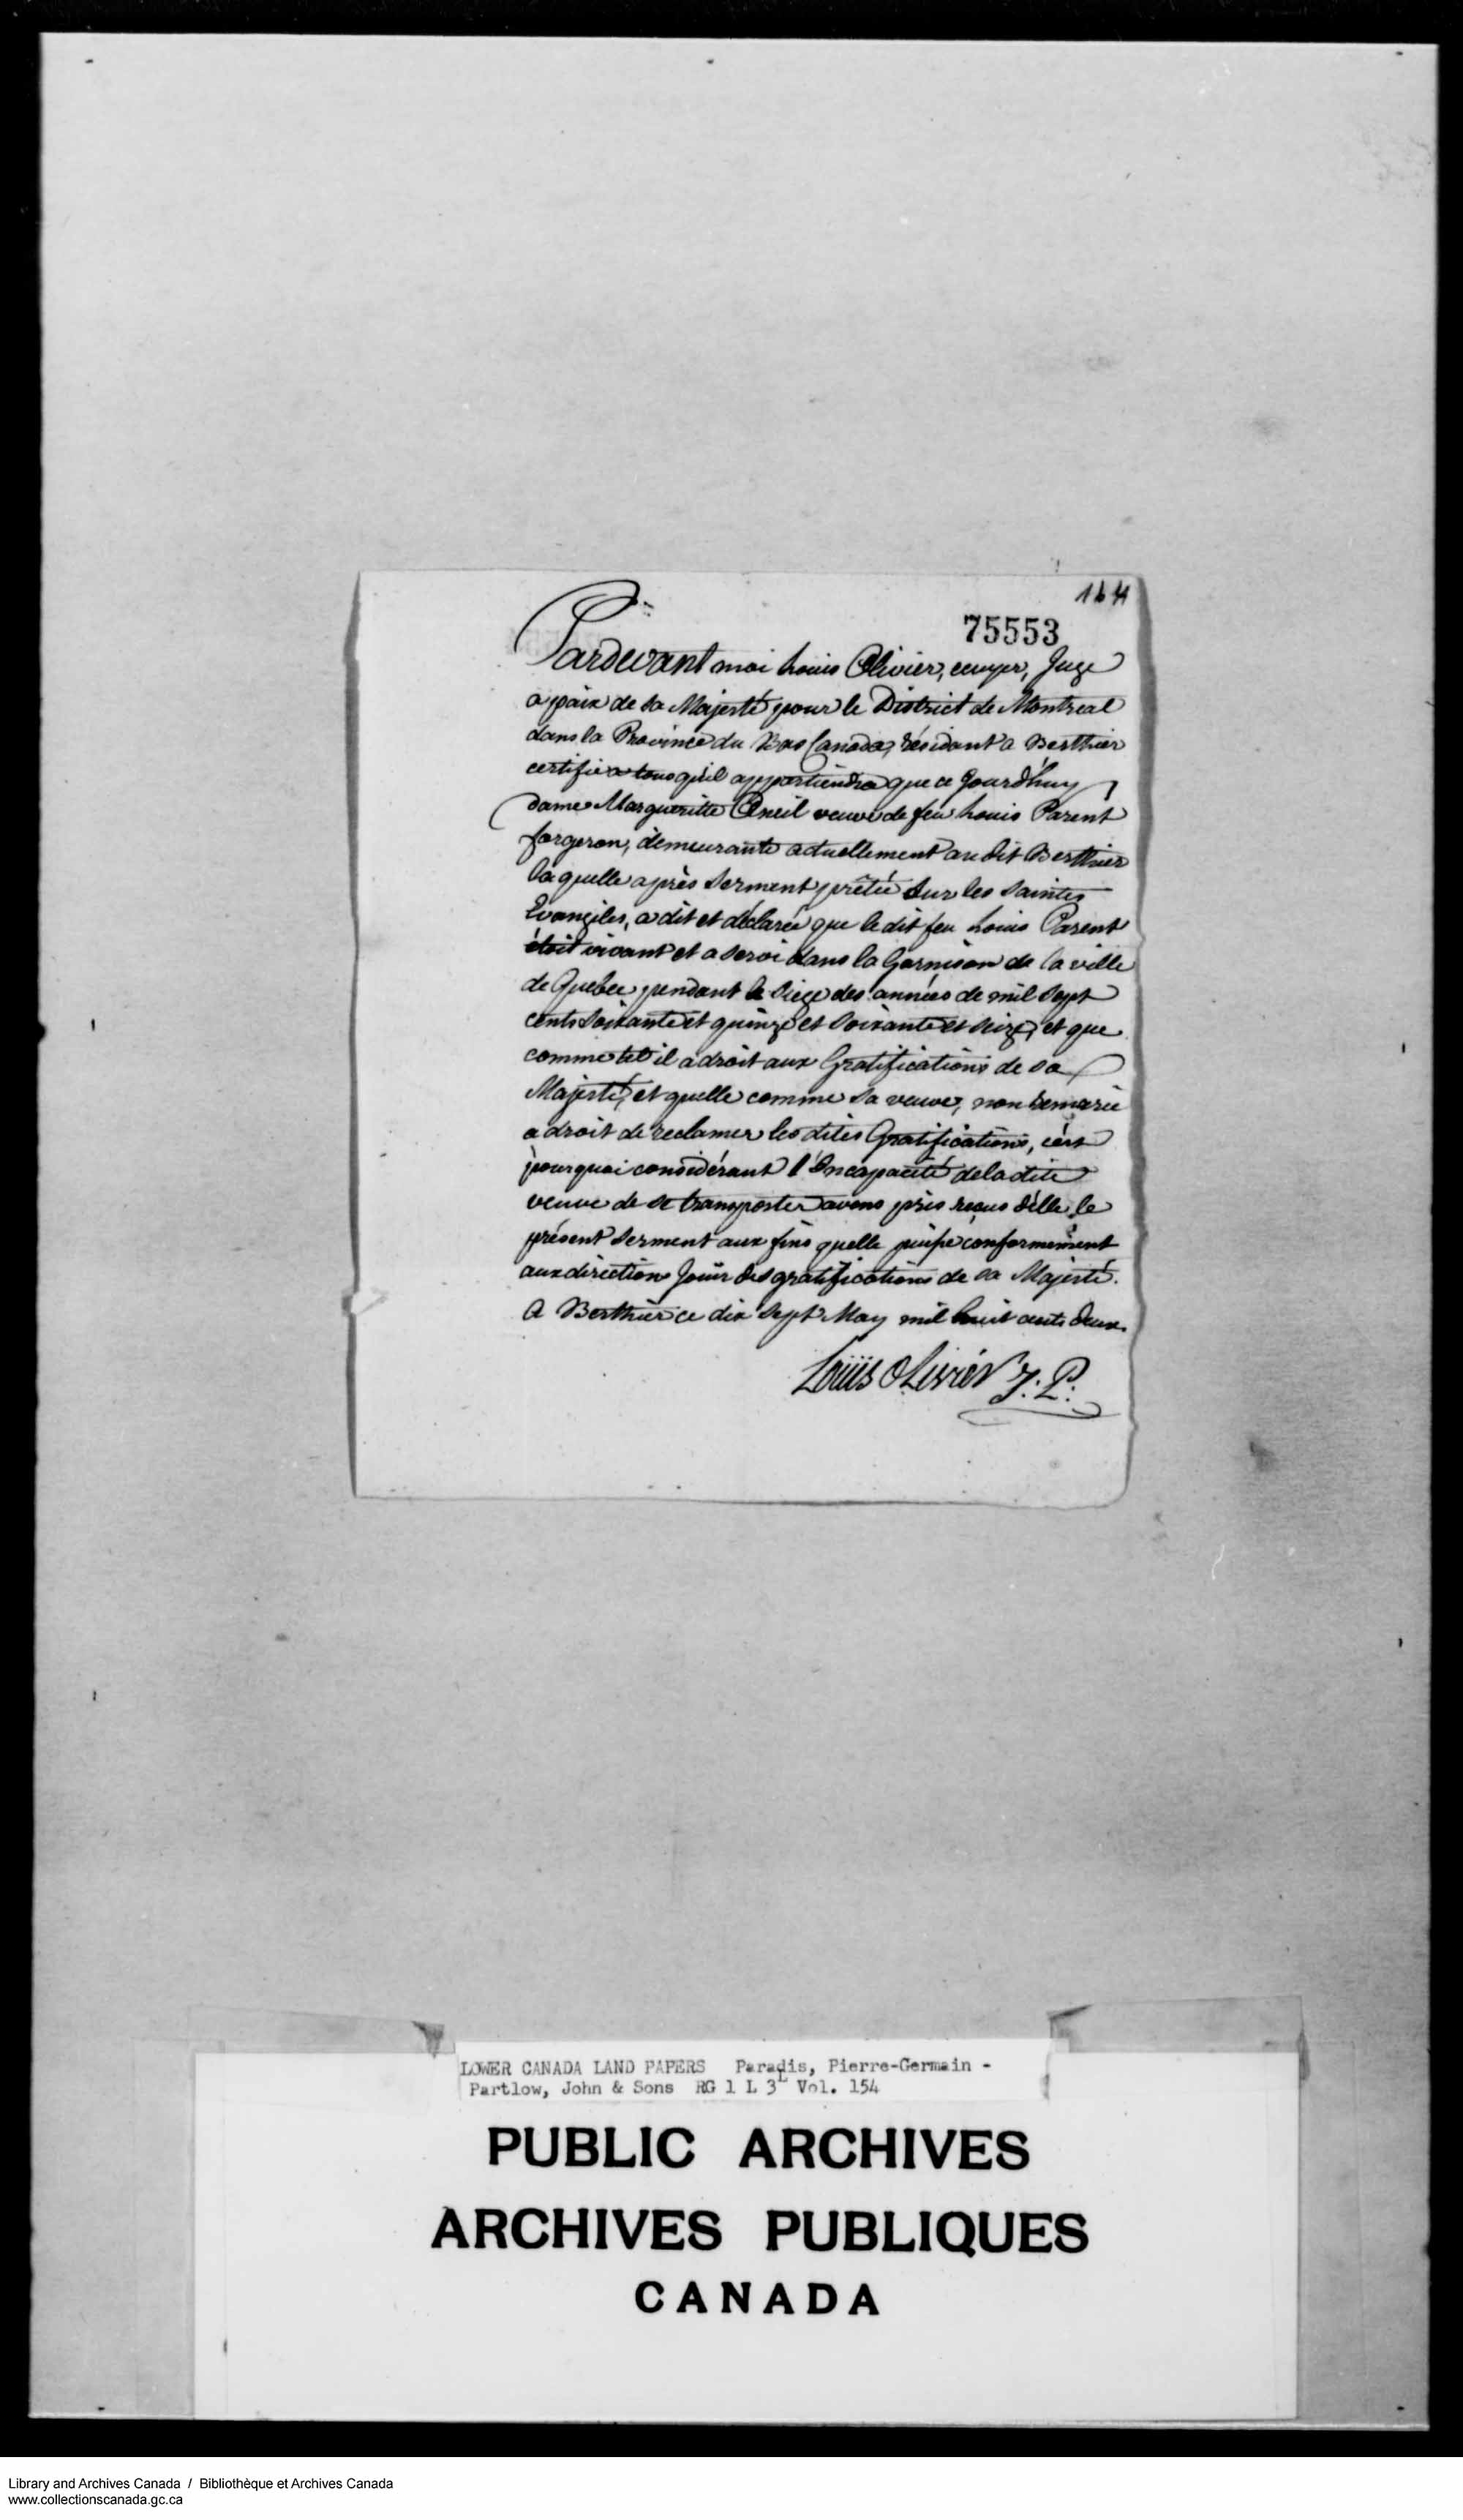 164
75553
Pardevant moi Louis Olivier, ecuyer, Juge
a paix de sa Majesté pour le District de Montreal
dans la Province du Bas Canada, résidant a Berthier
certifie a tous qu'il appartiendra que ce Jourd'huy
dame Margueritte Oneil veuve de feu Louis Parent
forgeron, demeurante actuellement au dit Berthier
laquelle après serment prêtée sur les saintes
Evangiles, a dit et déclarée que le dit feu Louis Parent
étoit vivant et a servi dans la Garnison de la ville
de Quebec pendant le siege des années de mil sept
cents soixante et quinze et soixante et seize, et que
comme tel il a droit aux Gratifications de sa
Majesté, et quelle comme sa veuve, non remarié
a droit de reclamer les dites Gratifications, c'est
pourquoi considérant l'Incapacité de la dite
veuve de se transporter avons pris recus d'elle le
présent serment aux fins quelle puisse conformément
aux direction Jouir des gratifications de sa Majesté.
A Berthier ce dix sept May mil huit cents deux.
Louis Olivier J: P:
LOWER CANADA LAND PAPERS Paradis, Pierre-Germain -
Partlow, John & Sons RG 1 L 3L Vol. 154
PUBLIC ARCHIVES
ARCHIVES PUBLIQUES
CANADA
Library and Archives Canada / Bibliothèque et Archives Canada
www.collectionscanada.gc.ca